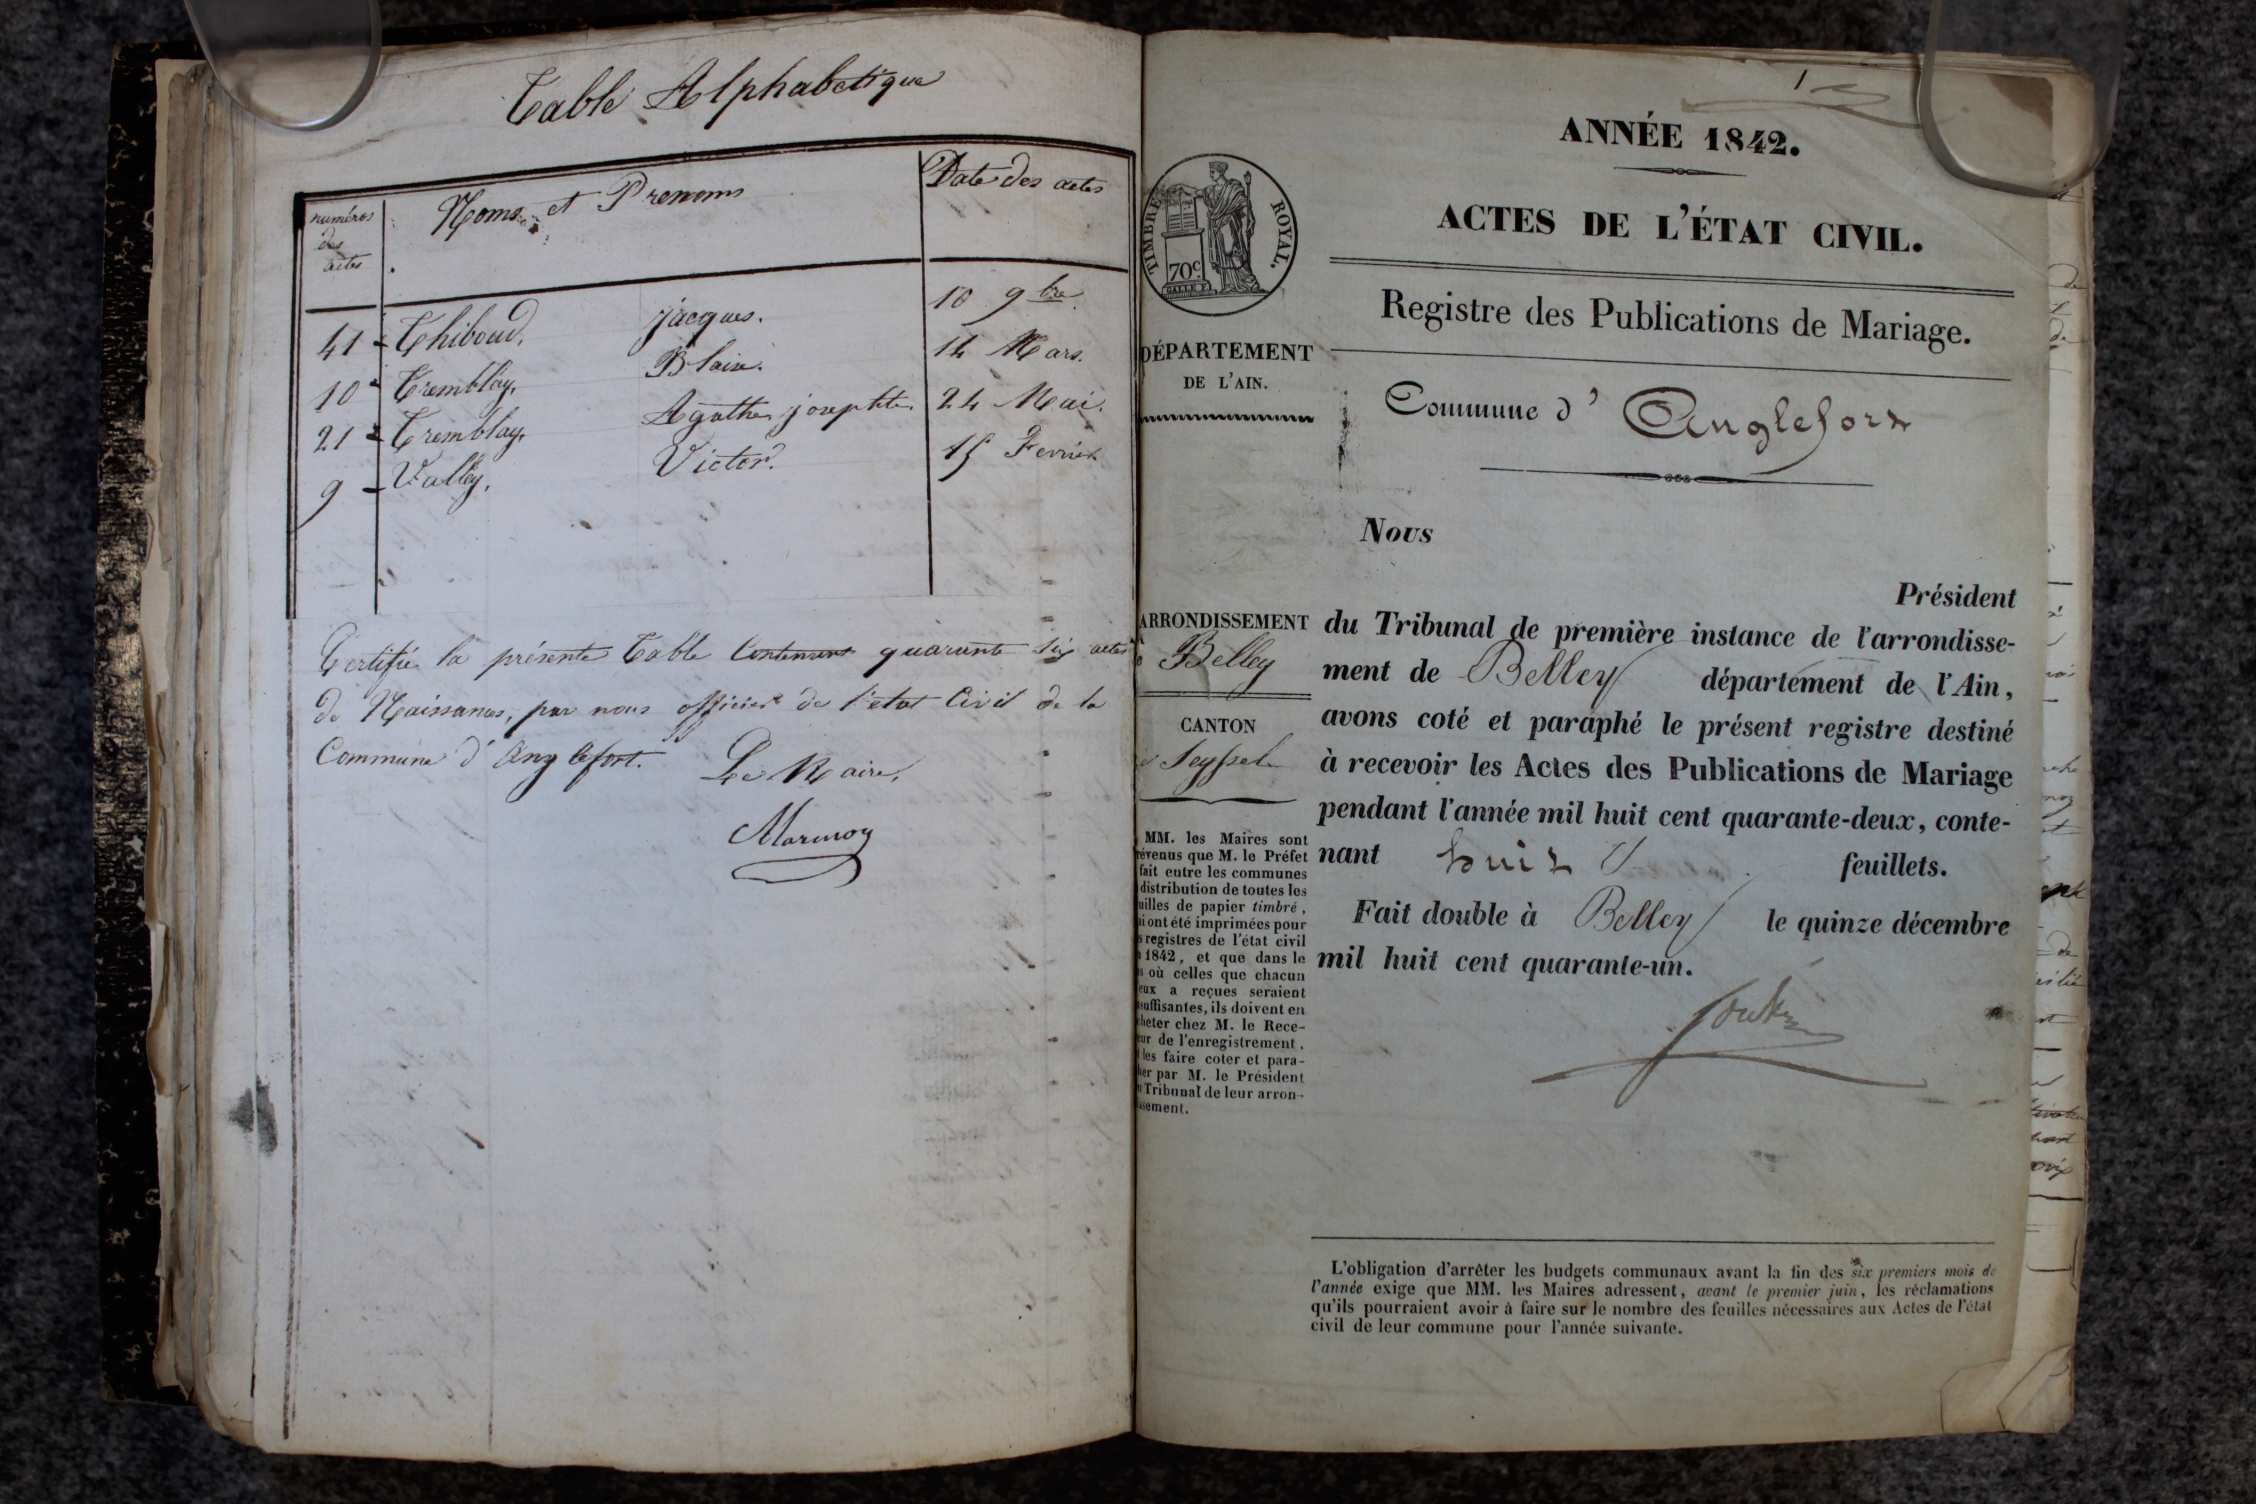 Table Alphabetique
numéros des actes
Noms et Prenoms
Date des actes
41 - Thiboud, jacques. 10 9bre
10 - Tremblay, Blaise. 14 Mars.
21 - Tremblay, Agathe josephte. 24 Mai.
9 - Vallẽy, Victor. 15 Fevrier
Certifié la présente Table Contenant quarante six actes
de Naissances, par nous officier de l'état Civil de la
Commune d'Anglefort.
Le Maire,
Marmoy
1
ANNÉE 1842.
ACTES DE L'ÉTAT CIVIL.
TIMBRE ROYAL.
70c
GALLE F.
Registre des Publications de Mariage.
DÉPARTEMENT
DE L'AIN.
Commune d'Anglefort
Nous
Président
ARRONDISSEMENT
Belley
CANTON
Seyssel
du Tribunal de première instance de l'arrondisse-
ment de Belley département de l'Ain,
avons coté et paraphé le présent registre destiné
à recevoir les Actes des Publications de Mariage
pendant l'année mil huit cent quarante-deux, conte-
nant huit feuillets.
Fait double à Belley le quinze décembre
mil huit cent quarante-un.
MM. les Maires sont
révenus que M. le Préfet
fait entre les communes
distribution de toutes les
uilles de papier timbré,
ui ont été imprimées pour
s registres de l'état civil
1842, et que dans le
s où celles que chacun
eux a reçues seraient
suffisantes, ils doivent en
cheter chez M. le Rece-
eur de l'enregistrement,
les faire coter et para-
her par M. le Président
u Tribunal de leur arron-
issement.
L'obligation d'arrêter les budgets communaux avant la fin des six premiers mois de
l'année exige que MM. les Maires adressent, avant le premier juin, les réclamations
qu'ils pourraient avoir à faire sur le nombre des feuilles nécessaires aux Actes de l'état
civil de leur commune pour l'année suivante.